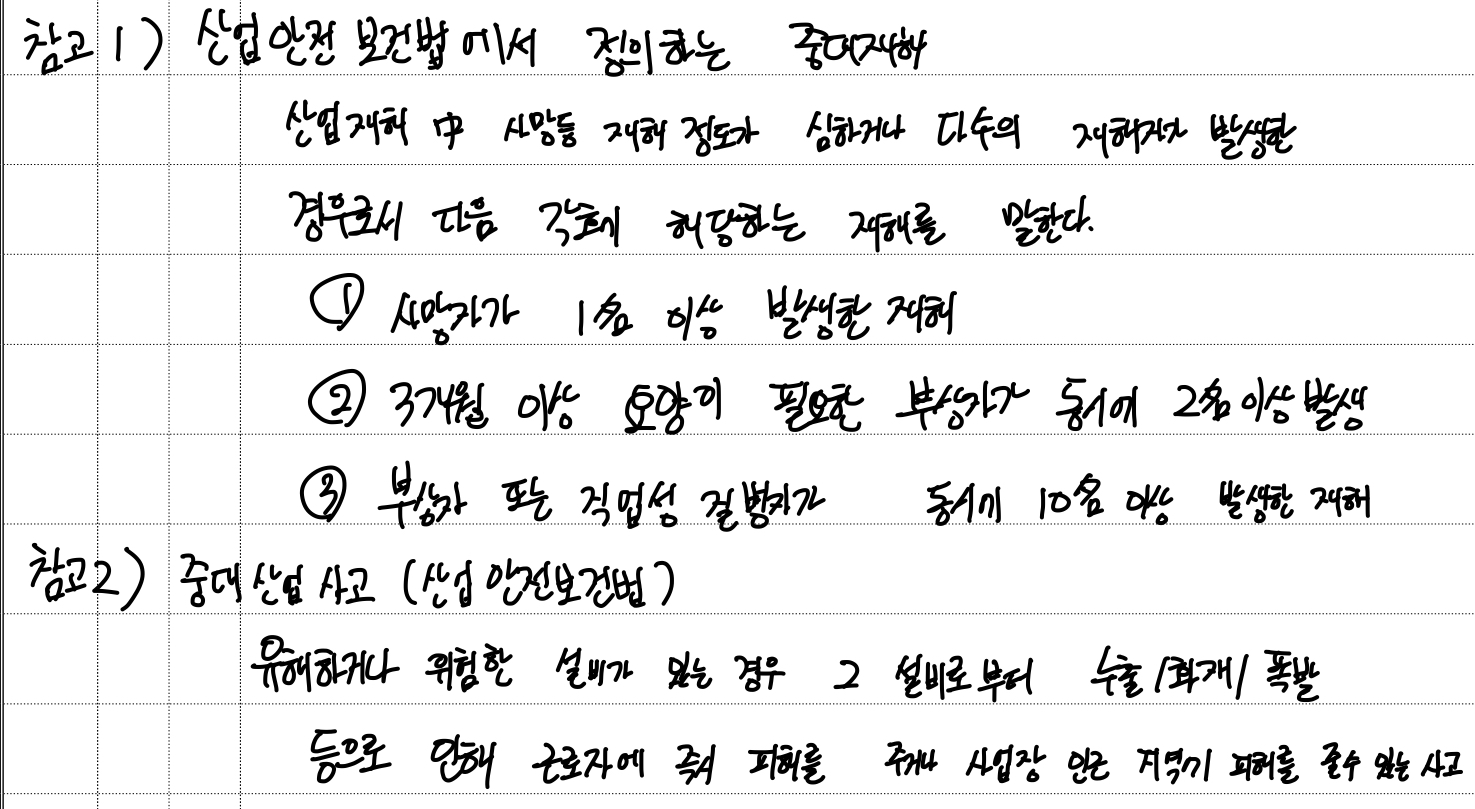 참고 1) 산업안전보건법에서 정의하는 중대재해
산업재해 中 사망등 재해 정도가 심하거나 다수의 재해자가 발생한
경우로서 다음 각호에 해당하는 재해를 말한다.
① 사망자가 1名 이상 발생한 재해
② 3개월 이상 요양이 필요한 부상자가 동시에 2名이상 발생
③ 부상자 또는 직업성 질병자가 동시에 10名 이상 발생한 재해
참고2) 중대산업사고 (산업안전보건법)
유해하거나 위험한 설비가 있는 경우 그 설비로부터 누출/화재/폭발
등으로 인해 근로자에 즉시 피해를 주거나 사업장 인근 지역에 피해를 줄수 있는 사고